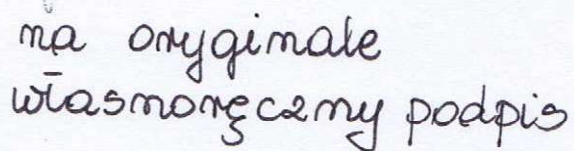 na oryginale
własnoręczny podpis